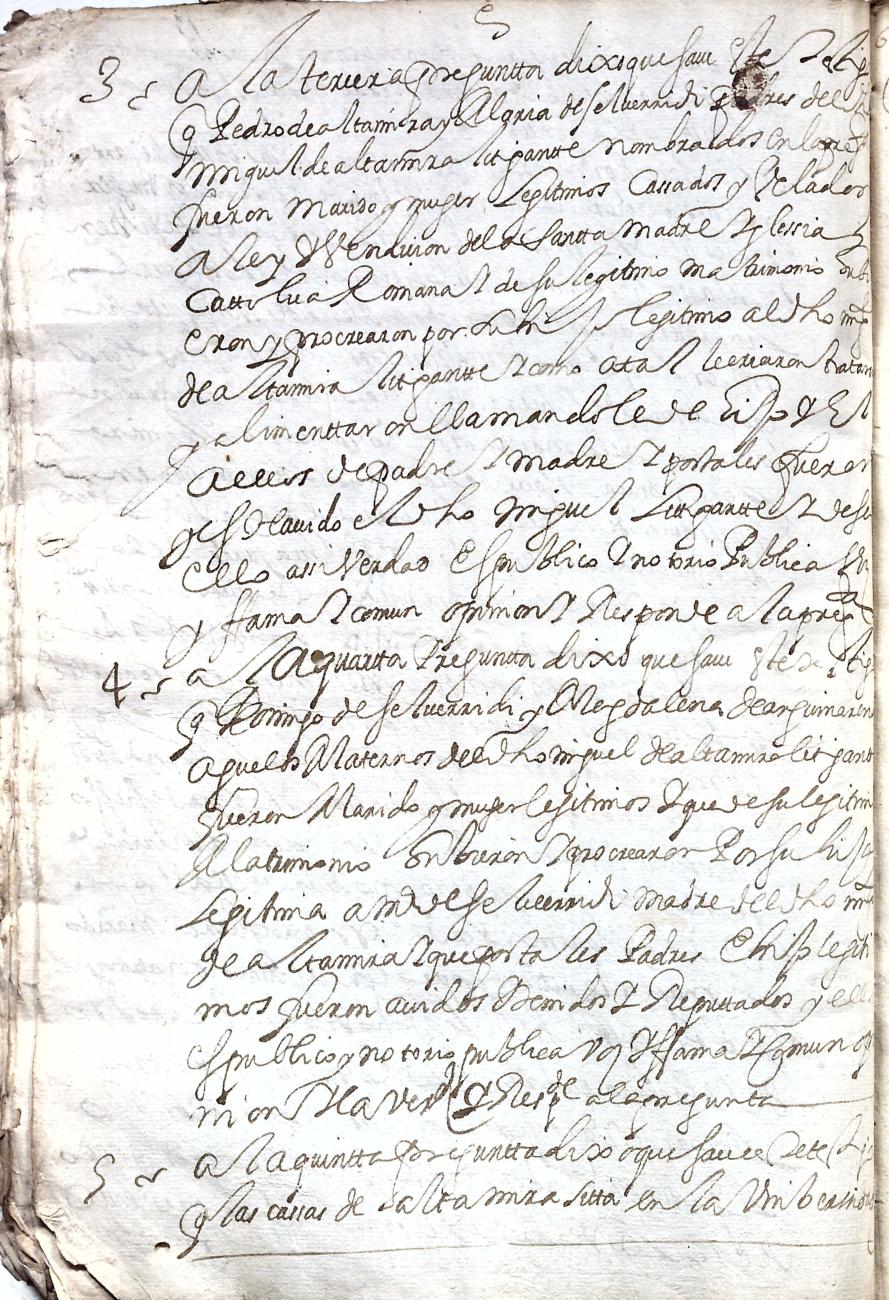 3 a la tercera preguntta dixo que save este
q Pedro de altamira y Maria de selverridi padres del
miguel de altamira litigantte nombrados en la preg
fueron marido y muger Legitimos Cassados y Velados
a ley vendicion de la Santta madre Yglessia
Cattolica Romana Y de su legitimo matrimonio
eron y procrearon por su hijo legitimo al dho
de altamira litigantte Y como a tal le criaron tratar
y alimenttaron llamandole de hijo Y El
a ellos de padre Y madre Y por tales fueron
y es y avido el dho miguel Littigantte Y de se
ello assi Verdad Es publico Y notorio Publica
y ffama Y comun opinion Y Responde a la preg
4 a la quartta Preguntta dixo que save este
q Domingo de selverridi y Magdalena de arguinaren
aguelos Maternos del dho miguel de altamira litigant
fueron Marido y muger legitimos Y que de su legitim
Matrimonio Y procrearon Por su hija
Legitima a de selverridi madre del dho
de altamira Y que por tales Padres E hijos legiti
mos fueron avidos thenidos Y Reputtados y ello
es publico y notorio publica voz Y ffama Y Comun opi
nion Y la verd Y Resp a la pregunta
5 a la quintta preguntta dixo que save este
q las cassas de altamira sitta en la Vnibersid